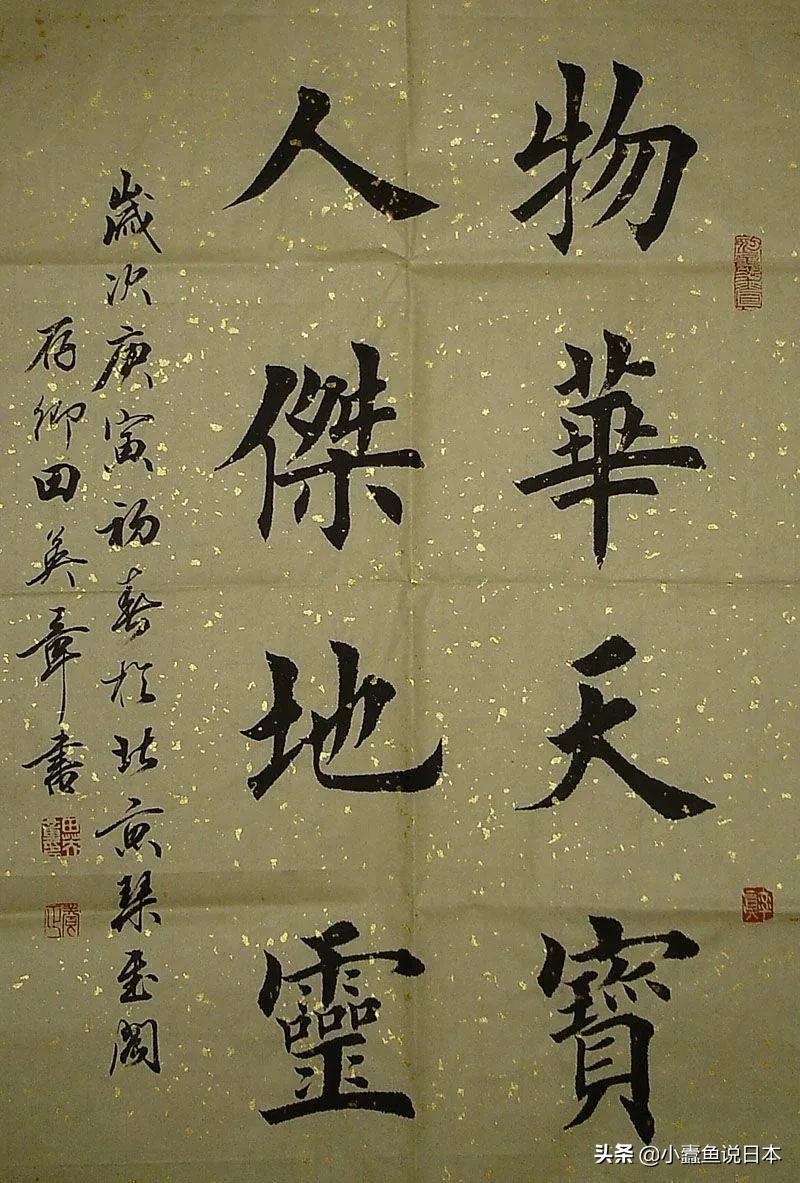 物華天寶
人傑地靈
歲次庚寅初春於北京琴玉閣
存卿田英章書
头条 @小蠹鱼说日本